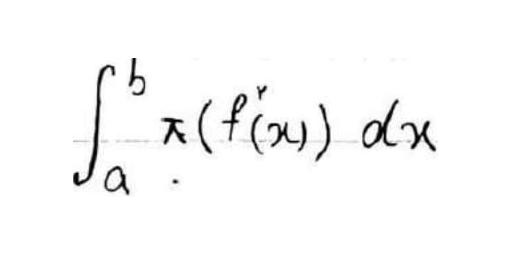 ∫_a^b π(f²(x)) dx